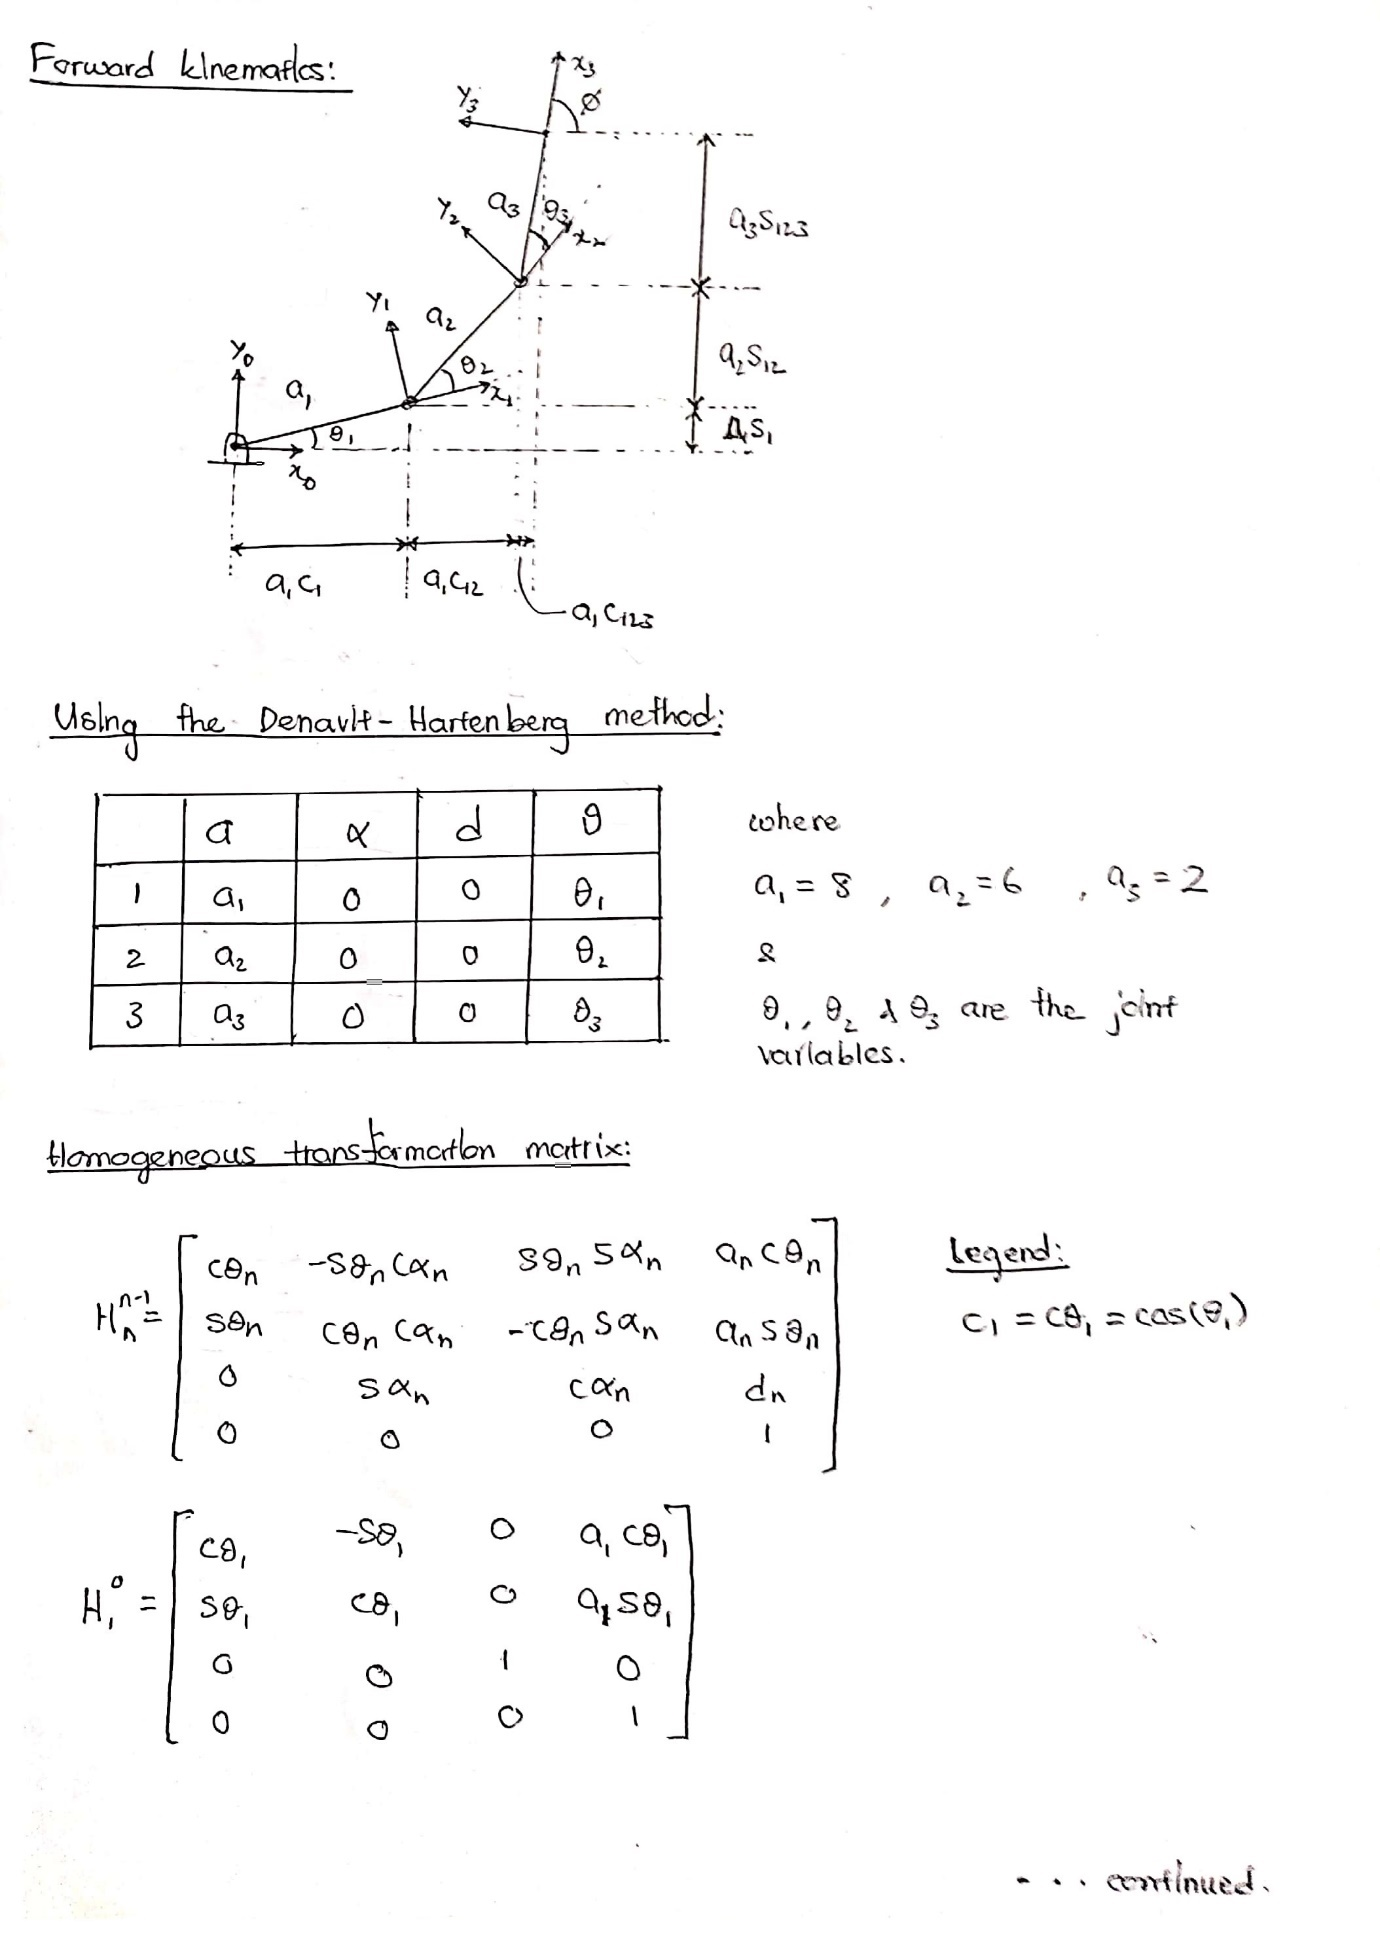 Forward kinematics:
x₃
Y₃
ø
a₃
θ₃
Y₂
x₂
a₃S₁₂₃
Y₁
a₂
θ₂
a₂S₁₂
Y₀
a₁
x₁
θ₁
a₁S₁
x₀
a₁C₁
a₁C₁₂
a₁C₁₂₃
Using the Denavit-Hartenberg method:
a α d θ
1 a₁ 0 0 θ₁
2 a₂ 0 0 θ₂
3 a₃ 0 0 θ₃
where
a₁ = 8 , a₂ = 6 , a₃ = 2
&
θ₁, θ₂ & θ₃ are the joint
variables.
Homogeneous transformation matrix:
cθₙ -sθₙ cαₙ sθₙ sαₙ aₙ cθₙ
Hₙⁿ⁻¹ = sθₙ cθₙ cαₙ -cθₙ sαₙ aₙ sθₙ
0 sαₙ cαₙ dₙ
0 0 0 1
Legend:
c₁ = cθ₁ = cos(θ₁)
cθ₁ -sθ₁ 0 a₁ cθ₁
H₁⁰ = sθ₁ cθ₁ 0 a₁ sθ₁
0 0 1 0
0 0 0 1
... continued.